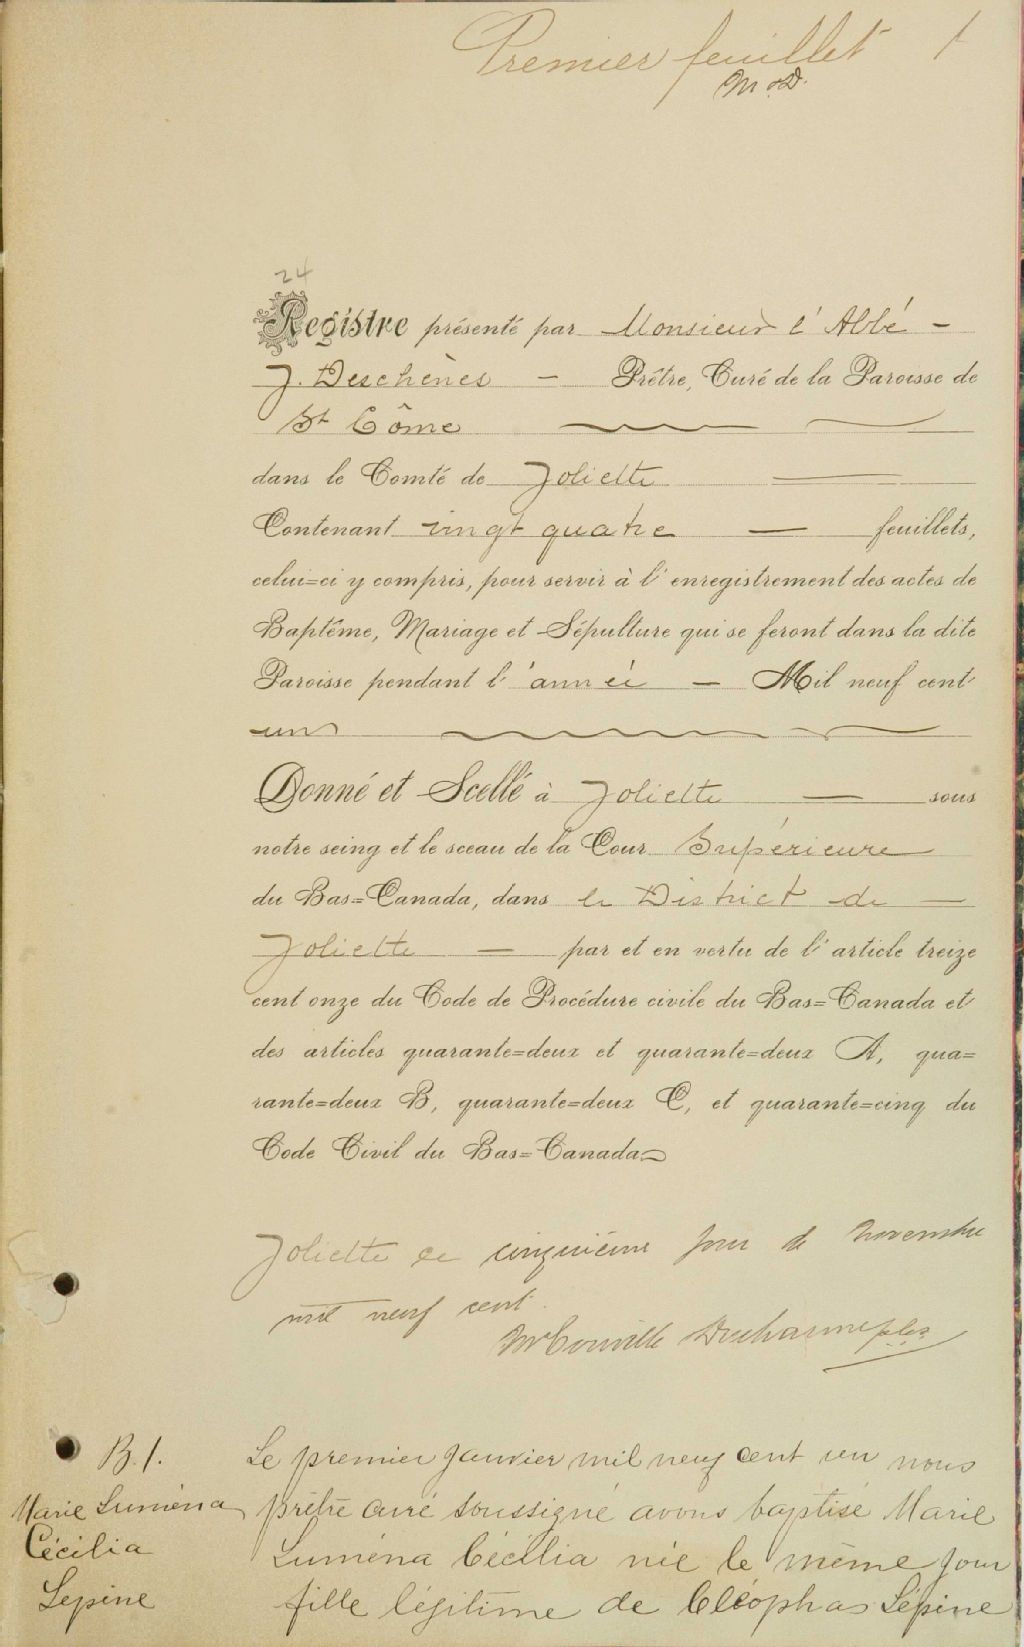 Premier feuillet 1
M & D.
24
Registre présenté par Monsieur l'Abbé -
J. Deschènes - Prêtre, Curé de la Paroisse de
St Côme
dans le Comté de Joliette
Contenant vingt quatre — feuillets,
celui=ci y compris, pour servir à l'enregistrement des actes de
Baptême, Mariage et Sépulture qui se feront dans la dite
Paroisse pendant l'année — Mil neuf cent
un
Donné et Scellé à Joliette — sous
notre seing et le sceau de la Cour Supérieure
du Bas=Canada, dans le District de —
Joliette — par et en vertu de l'article treize
cent onze du Code de Procédure civile du Bas=Canada et
des articles quarante=deux et quarante=deux A, qua=
rante=deux B, quarante=deux C, et quarante=cinq du
Code Civil du Bas=Canada
Joliette ce cinquième jour de Novembre
mil neuf cent.
Ducharme
B. 1.
Marie Luména
Cécilia
Lepine
Le premier Janvier mil neuf cent un nous
prêtre curé soussigné avons baptisé Marie
Luména Cécilia née le même jour
fille légitime de Cléophas Lépine